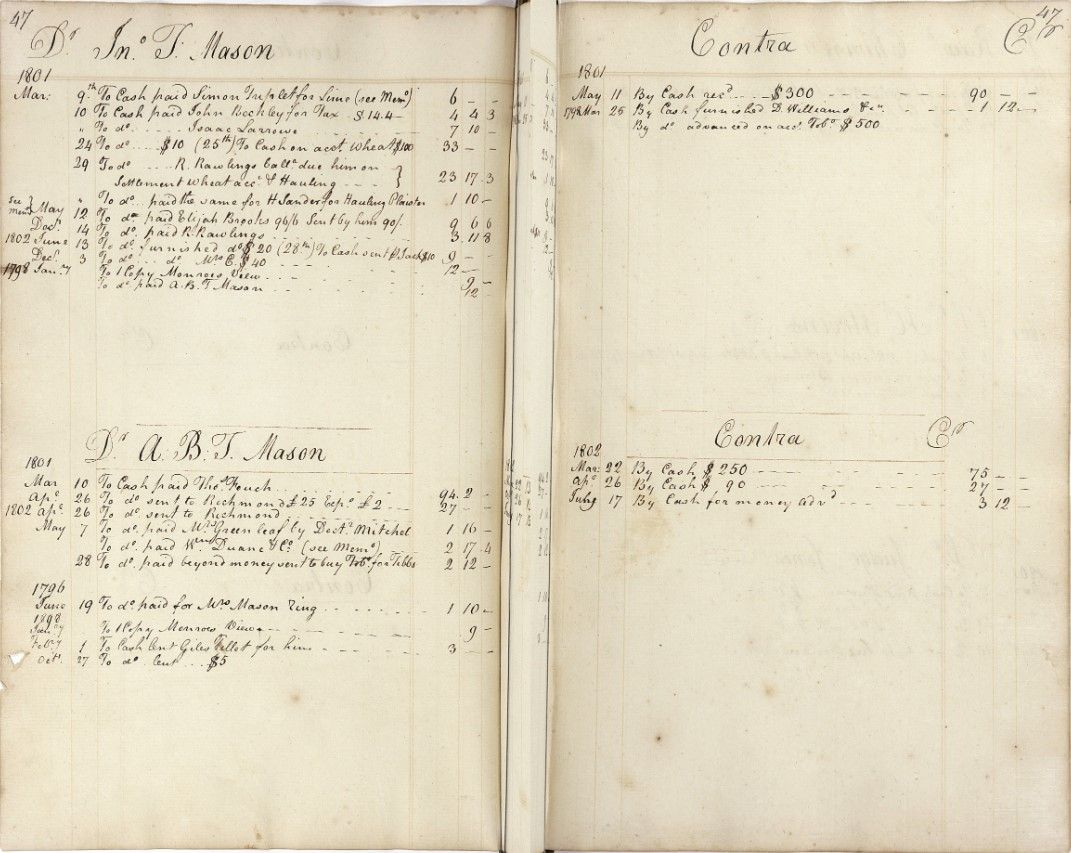 47
Dr Jno T. Mason
1801
Mar: 9th To Cash paid Simon Triplet for Lime (see Memo) 6 - -
10 To Cash paid John Beckley for Tax $14.4 - 4 4 3
" To do Isaac Larrowe 7 10 -
24 To do $10 (25th) To Cash on acct. Wheat $100 33 - -
29 To do R. Rawlings balle due him on
Settlement wheat acct & Hauling } 23 17 3
see Memo } " To do paid the same for H Sander for Hauling Plaister 1 10 -
May 12 To do paid Elijah Brooks 96/6 Sent by him 90/ 9 6 6
Decr. 14 To do paid R. Rawlings 3 11 8
1802 June 13 To do furnished do $20 (28th) To Cash sent $10 9 - -
Decr. 3 To do do Mrs C. $40 12 - -
1798 Jany To 1 Copy Monroes View 9 -
To do paid A. B. T. Mason 12
Dr A. B. T. Mason
1801
Mar 10 To Cash paid Thos Fouch 94 2 -
Apl 26 To do sent to Richmond £25 Expe £2 27 - -
1802 Apl 26 To do sent to Richmond
May 7 To do paid Mrs Greenleaf by Doctr. Mitchel 1 16 -
To do paid Wm Duane & Co (see Memo) 2 17 4
28 To do paid beyond money sent to buy Tobo for Tibbs 2 12 -
1796
June 19 To do paid for Mrs Mason ring 1 10 -
1798
Jany To 1 Copy Monroes View 9 -
Feby 1 To Cash lent Giles for him 3 - -
Octr. 27 To do lent $5
47
Contra Cr
1801
May 11 By Cash recd $300 90 - -
1798 Mar 25 By Cash furnished D. Williams &c 1 12 -
By do advanced on acct Tobo $500
Contra Cr
1802
Mar: 22 By Cash $250 75 - -
Apl 26 By Cash $90 27 - -
June 17 By Cash for money advd 3 12 -